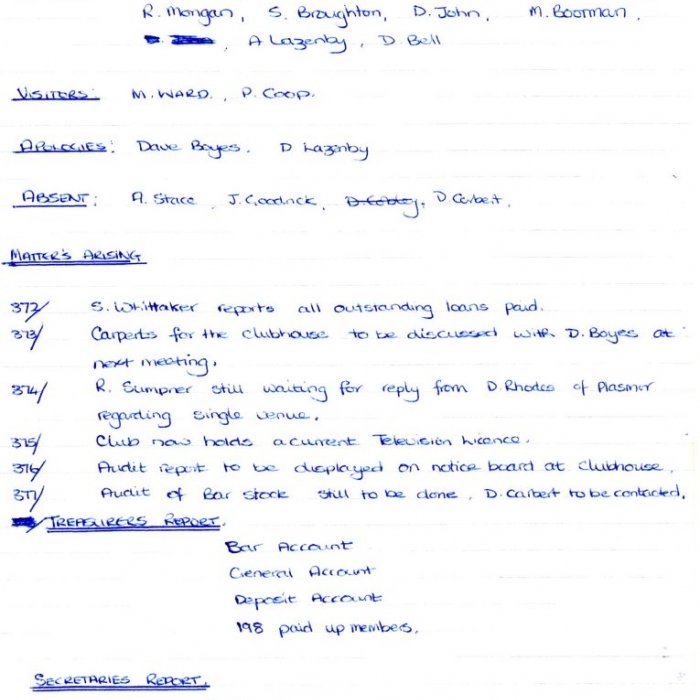 R. Mongan, S. Broughton, D. John, M. Boorman,
A Lazenby, D. Bell
VISITORS: M. WARD., P. COOP.
APOLOGIES: Dave Boyes. D Lazenby
ABSENT: A. Stace, J. Goodrick, D. Carbert.
MATTER'S ARISING
372/ S. Whittaker reports all outstanding loans paid.
373/ Carperts for the clubhouse to be discussed with D. Boyes at
next meeting.
374/ R. Sumpner still waiting for reply from D. Rhodes of Plasmor
regarding single venue.
375/ Club now holds a current Television Licence.
376/ Audit report to be displayed on notice board at clubhouse.
377/ Audit of Bar stock still to be done. D. Carbert to be contacted.
TREASURERS REPORT.
Bar Account
General Account
Deposit Account
198 paid up members.
SECRETARIES REPORT.